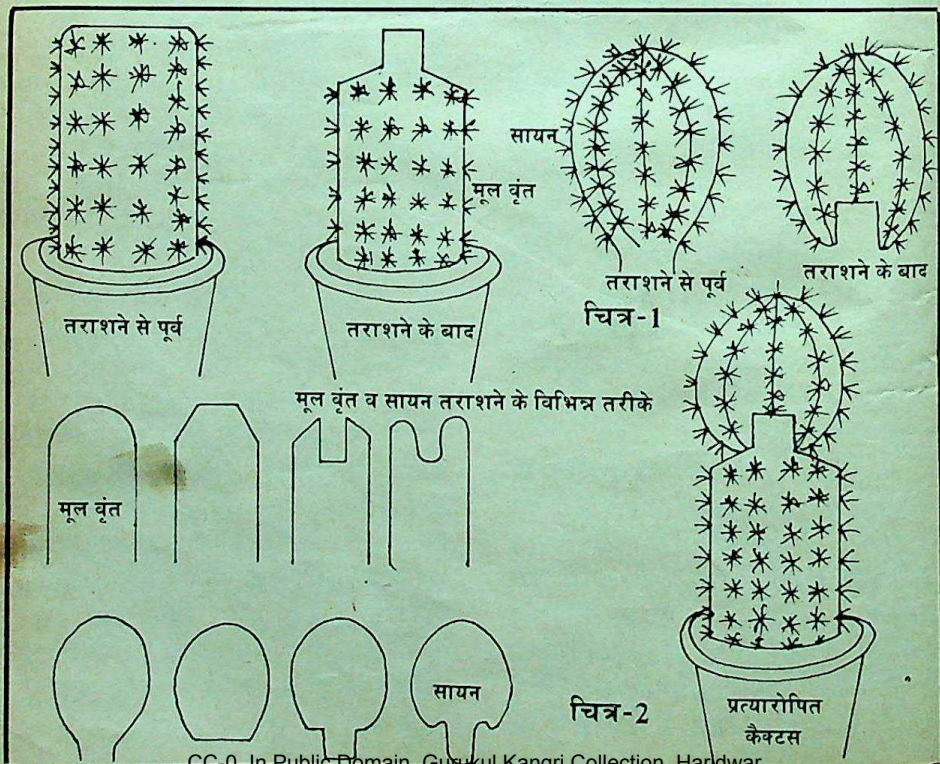 सायन
मूल वृंत
तराशने से पूर्व
तराशने के बाद
चित्र-1
तराशने से पूर्व
तराशने के बाद
मूल वृंत व सायन तराशने के विभिन्न तरीके
मूल वृंत
सायन
चित्र-2
प्रत्यारोपित
कैक्टस
CC-0. In Public Domain. Gurukul Kangri Collection, Haridwar